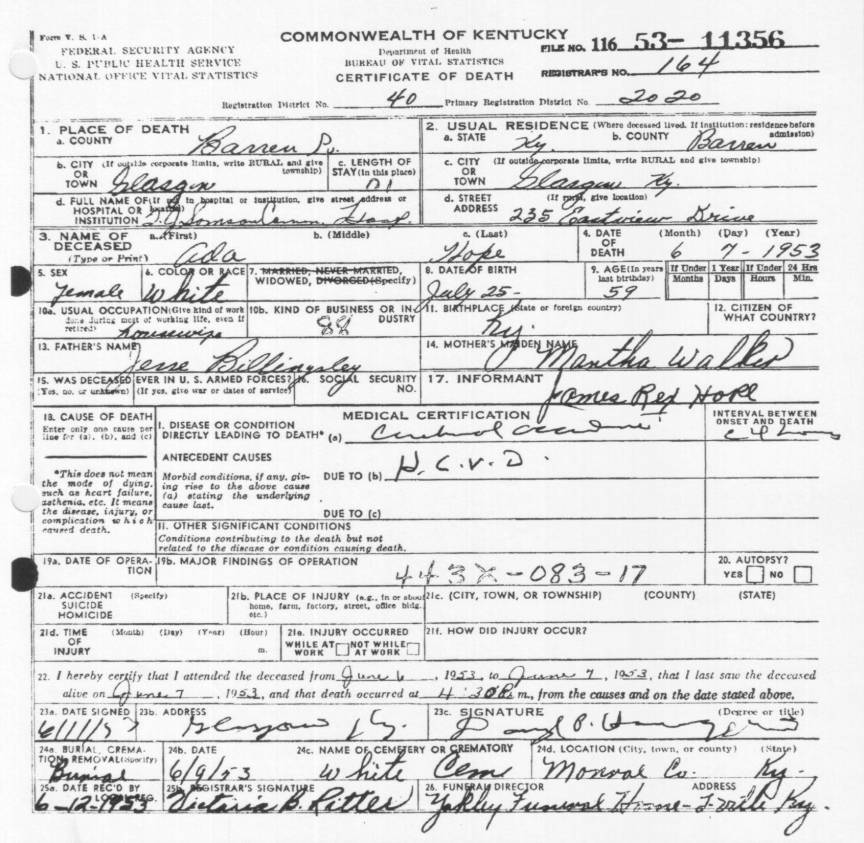 Form V. S. 1-A
COMMONWEALTH OF KENTUCKY
FEDERAL SECURITY AGENCY
Department of Health
FILE NO. 116 53- 11356
U. S. PUBLIC HEALTH SERVICE
BUREAU OF VITAL STATISTICS
NATIONAL OFFICE VITAL STATISTICS
CERTIFICATE OF DEATH
REGISTRAR'S NO. 164
Registration District No. 40 Primary Registration District No. 2020
1. PLACE OF DEATH
a. COUNTY Barren
2. USUAL RESIDENCE (Where deceased lived. If institution: residence before admission)
a. STATE Ky. b. COUNTY Barren
b. CITY (If outside corporate limits, write RURAL and give township)
OR
TOWN Glasgow
c. LENGTH OF
STAY (in this place)
c. CITY (If outside corporate limits, write RURAL and give township)
OR
TOWN Glasgow Ky.
d. FULL NAME OF (If not in hospital or institution, give street address or location)
HOSPITAL OR
INSTITUTION T. J. Samson Comm. Hosp.
d. STREET (If rural, give location)
ADDRESS 235 Eastview Drive
3. NAME OF DECEASED
(Type or Print)
a. (First) Ada
b. (Middle)
c. (Last) Hope
4. DATE OF DEATH (Month) (Day) (Year)
6 7-1953
5. SEX
female
6. COLOR OR RACE
White
7. MARRIED, NEVER MARRIED,
WIDOWED, DIVORCED (Specify)
8. DATE OF BIRTH
July 25-
9. AGE (In years last birthday)
59
If Under 1 Year
Months Days
If Under 24 Hrs
Hours Min.
10a. USUAL OCCUPATION (Give kind of work done during most of working life, even if retired)
housewife
10b. KIND OF BUSINESS OR INDUSTRY
11. BIRTHPLACE (State or foreign country)
Ky.
12. CITIZEN OF WHAT COUNTRY?
13. FATHER'S NAME
Jesse Billingsley
14. MOTHER'S MAIDEN NAME
Martha Walker
15. WAS DECEASED EVER IN U. S. ARMED FORCES?
(Yes, no, or unknown) (If yes, give war or dates of service)
16. SOCIAL SECURITY NO.
17. INFORMANT
James Rex Hope
18. CAUSE OF DEATH
Enter only one cause per line for (a), (b), and (c)
MEDICAL CERTIFICATION
INTERVAL BETWEEN ONSET AND DEATH
I. DISEASE OR CONDITION
DIRECTLY LEADING TO DEATH* (a) Cerebral accident
*This does not mean the mode of dying, such as heart failure, asthenia, etc. It means the disease, injury, or complication which caused death.
ANTECEDENT CAUSES
Morbid conditions, if any, giving rise to the above cause (a) stating the underlying cause last.
DUE TO (b) H. C. V. D.
DUE TO (c)
II. OTHER SIGNIFICANT CONDITIONS
Conditions contributing to the death but not
related to the disease or condition causing death.
19a. DATE OF OPERATION
19b. MAJOR FINDINGS OF OPERATION
443X-083-17
20. AUTOPSY?
YES NO
21a. ACCIDENT (Specify)
SUICIDE
HOMICIDE
21b. PLACE OF INJURY (e.g., in or about home, farm, factory, street, office bldg. etc.)
21c. (CITY, TOWN, OR TOWNSHIP) (COUNTY) (STATE)
21d. TIME OF INJURY (Month) (Day) (Year) (Hour) m.
21e. INJURY OCCURRED
WHILE AT WORK NOT WHILE AT WORK
21f. HOW DID INJURY OCCUR?
22. I hereby certify that I attended the deceased from June 6, 1953, to June 7, 1953, that I last saw the deceased
alive on June 7, 1953, and that death occurred at 4:30P.m., from the causes and on the date stated above.
23a. DATE SIGNED
23b. ADDRESS
Glasgow Ky.
23c. SIGNATURE (Degree or title)
24a. BURIAL, CREMATION, REMOVAL (Specify)
Burial
24b. DATE
6/9/53
24c. NAME OF CEMETERY OR CREMATORY
White Cem
24d. LOCATION (City, town, or county) (State)
Monroe Co. Ky.
25a. DATE REC'D BY LOCAL REG.
6-12-1953
25b. REGISTRAR'S SIGNATURE
Victoria B. Ritter
26. FUNERAL DIRECTOR ADDRESS
Yokley Funeral Home- T-ville Ky.